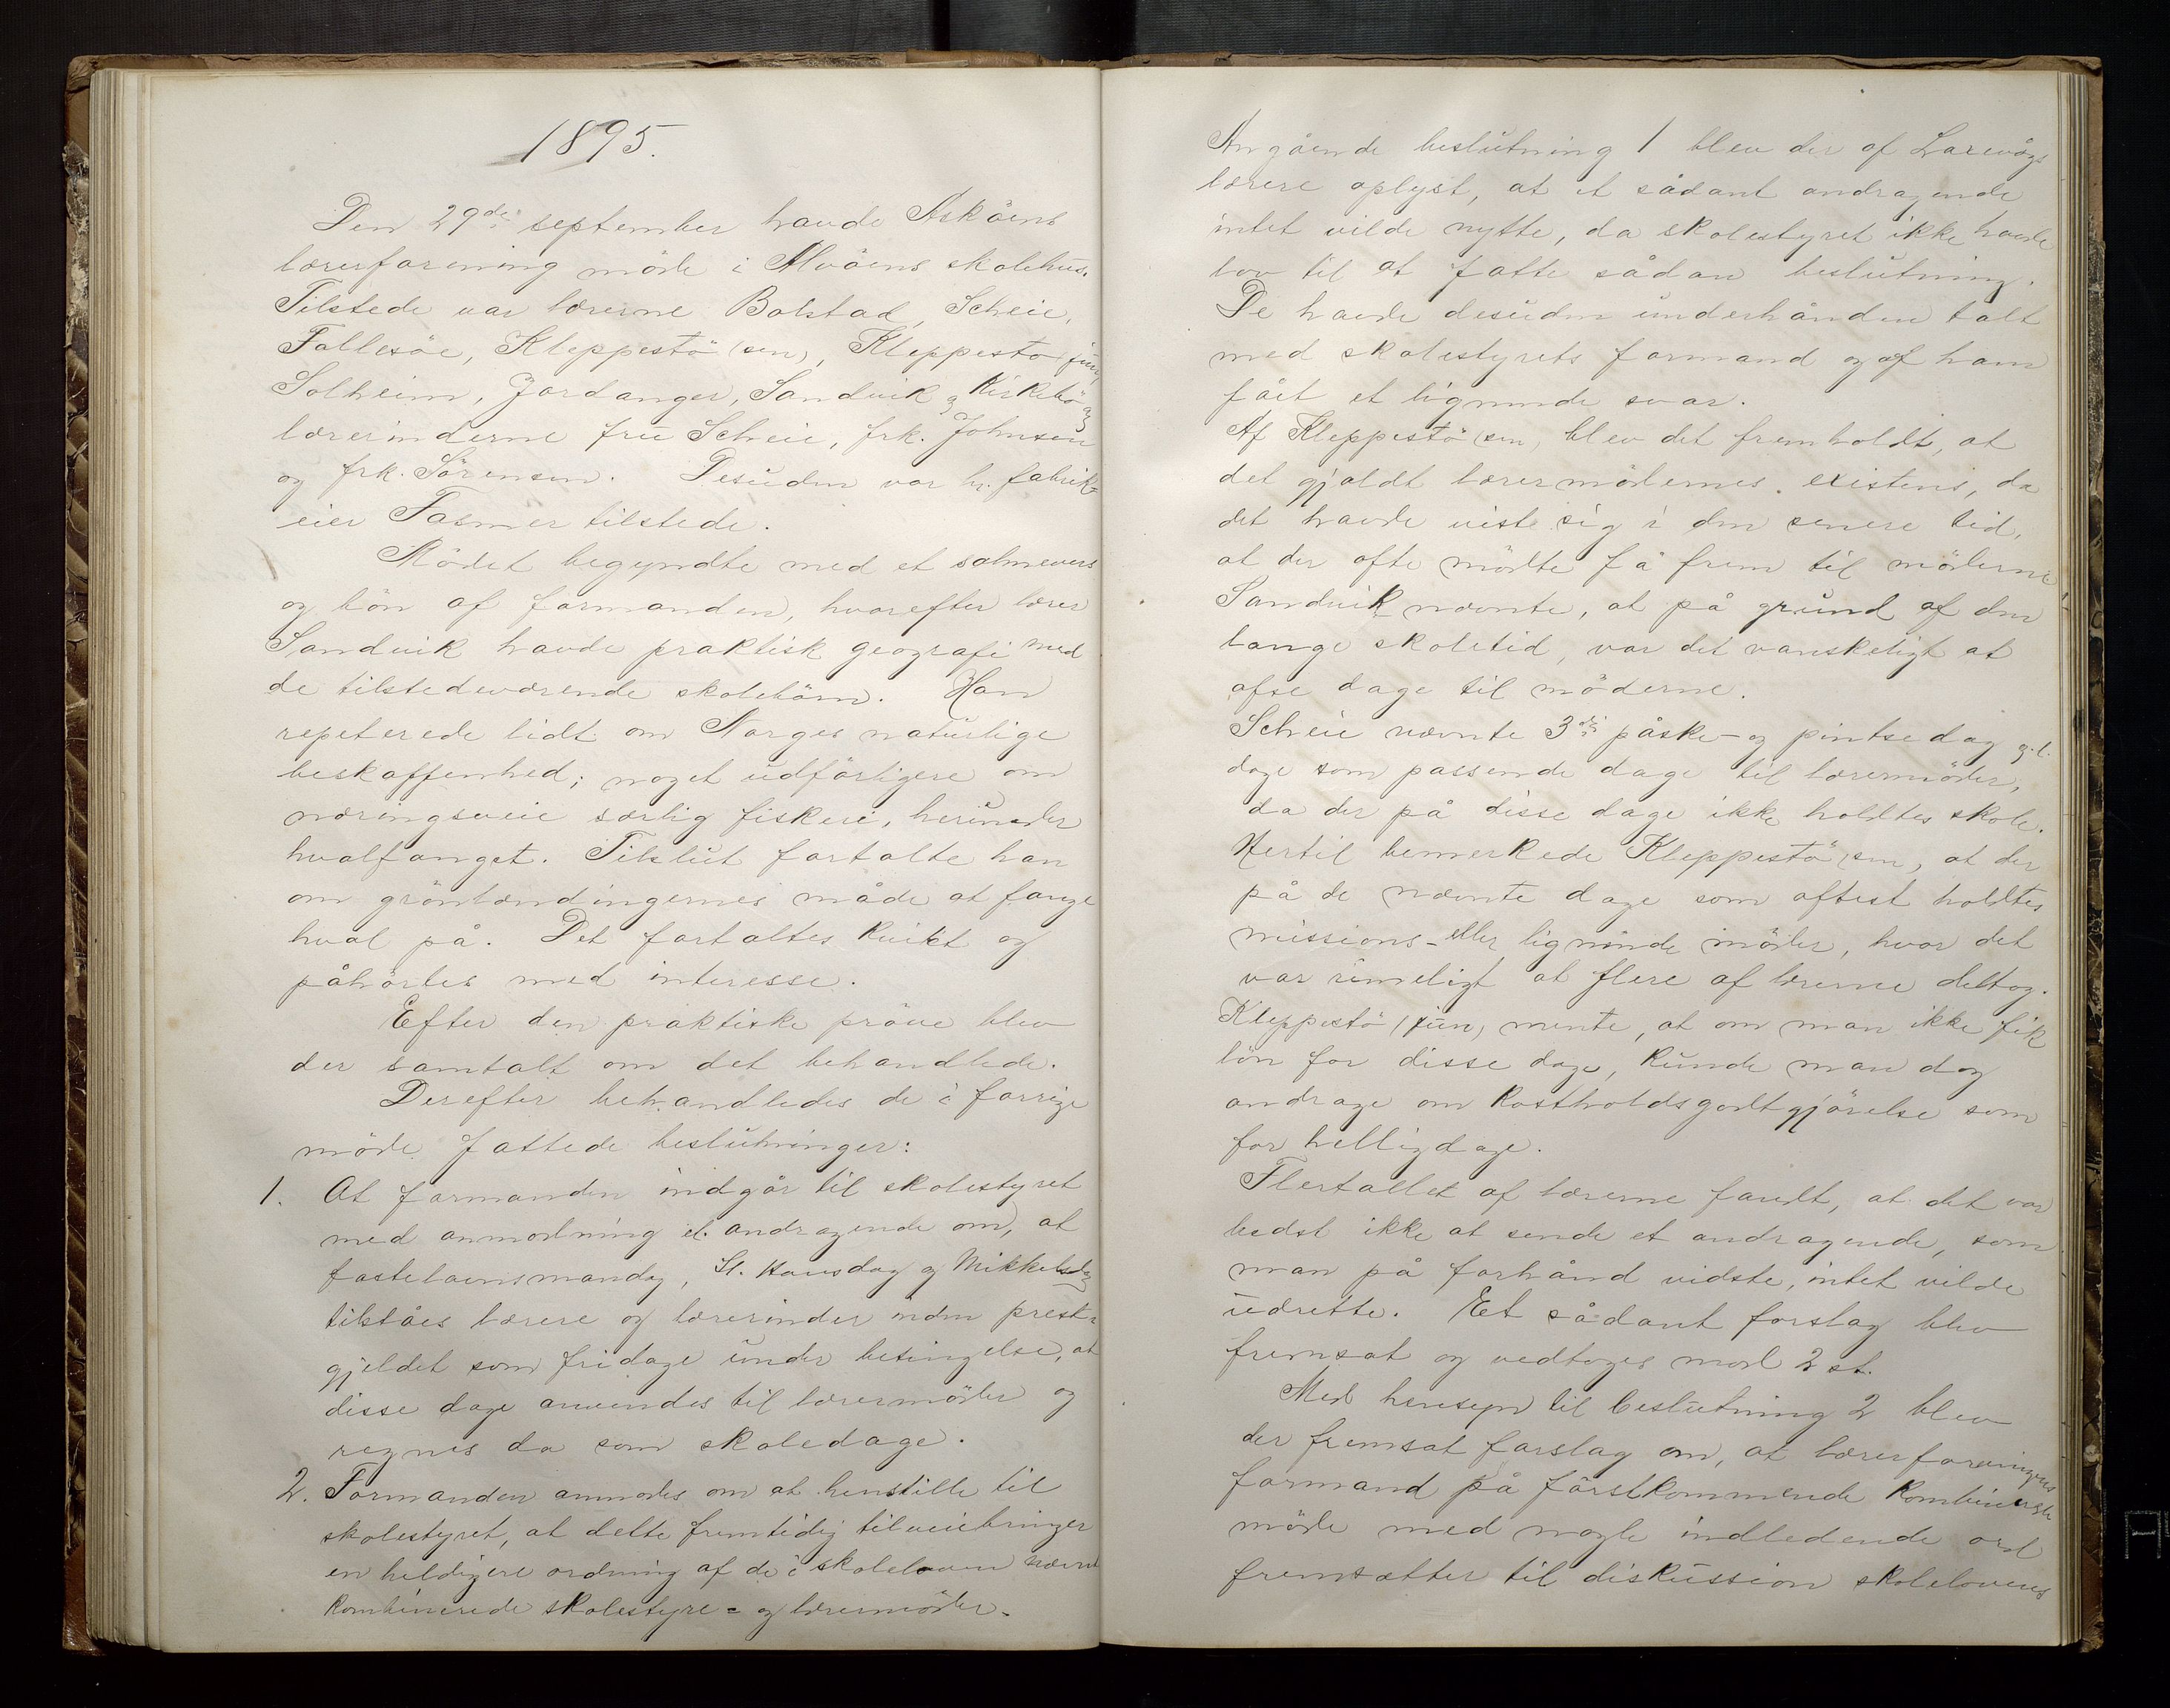 1895.
Den 29de september havde Asköens
lærerforening möde i Alvöens skolehus.
Tilstede var lærerne Bolstad, Scheie,
Follesöe, Kleppestö (sen), Kleppestö (jun),
Solheim, Jordanger, Sandvik og Kirkebö og
lærerinderne fru Scheie, frk. Johnsen
og frk. Sörensen. Desuden var hr. fabrik-
eier Fasmer tilstede.
Mödet begyndte med et salmevers
og bön af formanden, hvorefter lærer
Sandvik havde praktisk geografi med
de tilstedeværende skolebörn. Han
repeterede lidt om Norges naturlige
beskaffenhed; noget udförligere om
næringsveie særlig fiskeri, herunder
hvalfanget. Tilslut fortalte han
om grönlændingernes måde at fange
hval på. Det fortaltes kvikt og
påhörtes med interesse.
Efter den praktiske pröve blev
der samtalt om det behandlede.
Derefter behandledes de i forrige
möde fattede beslutninger:
1. At formanden indgår til skolestyret
med anmodning el. andragende om, at
fastelavnsmandag, St. Hansdag og Mikkelsdag
tilståes lærere og lærerinder inden prest-
gjeldet som fridage under betingelse, at
disse dage anvendes til lærermöder og
regnes da som skoledage.
2. Formanden anmodes om at henstille til
skolestyret, at dette fremtidig tilveiebringer
en heldigere ordning af de i skoleloven nævnte
kombinerede skolestyre- og lærermöder.
Angående beslutning 1 blev der af Laxevågs
lærere oplyst, at et sådant andragende
intet vilde nytte, da skolestyret ikke havde
lov til at fatte sådan beslutning.
De havde desuden underhånden talt
med skolestyrets formand og af ham
fået et lignende svar.
Af Kleppestö (sen) blev det fremholdt, at
det gjaldt lærermödernes existens, da
det havde vist sig i den senere tid,
at der ofte mödte få frem til möderne
Sandvik nævnte, at på grund af den
lange skoletid, var det vanskeligt at
afse dage til möderne.
Scheie nævnte 3die påske- og pintsedag o. l.
dage som passende dage til lærermöder,
da der på disse dage ikke holdtes skole.
Hertil bemerkede Kleppestö (sen), at der
på de nævnte dage som oftest holdtes
missions- eller lignende möder, hvor det
var rimeligt at flere af lærerne deltog.
Kleppestö (jun) mente, at om man ikke fik
lön for disse dage, kunde man dog
andrage om kostholdsgodtgjörelse som
for helligdage.
Flertallet af lærerne fandt, at det var
bedst ikke at sende et andragende, som
man på forhånd vidste, intet vilde
udrette. Et sådant forslag blev
fremsat og vedtoges mod 2 st.
Med hensyn til beslutning 2 blev
der fremsat forslag om, at lærerforeningens
formand på förstkommende kombinerede
möde med nogle indledende ord
fremsætter til diskussion skolelovens